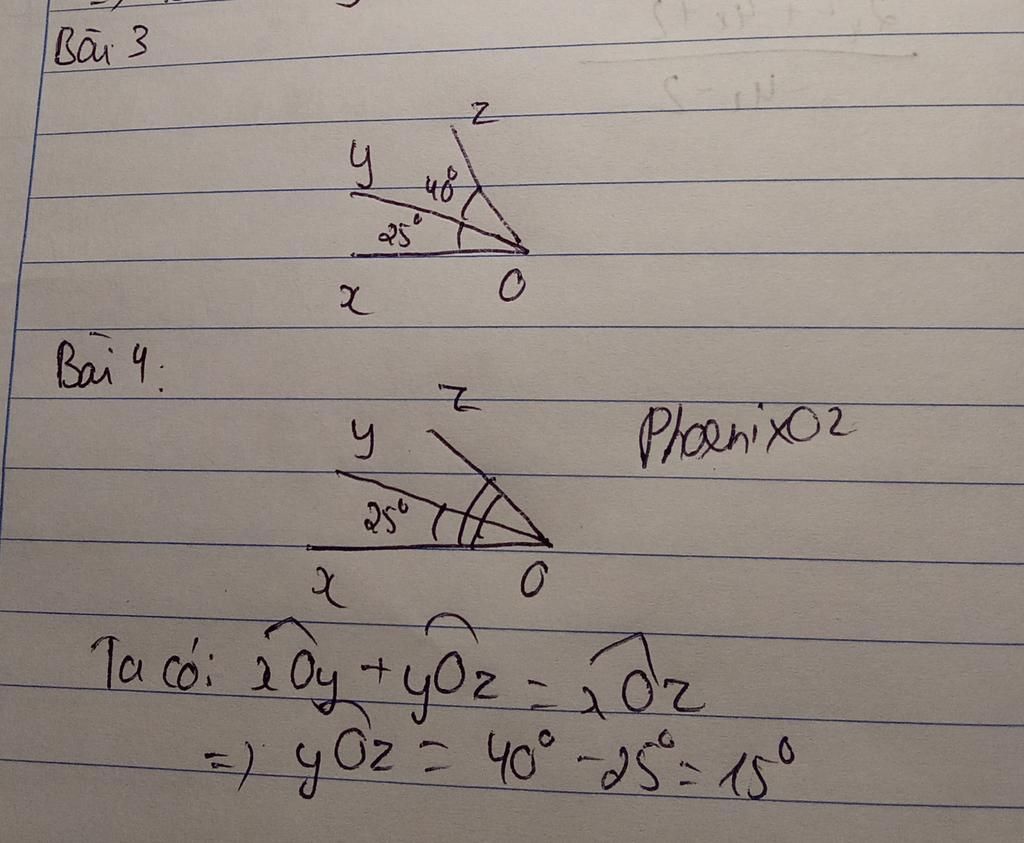 Bài 3
z
y
40°
25°
x
O
Bài 4:
z
y
PhoenixOz
25°
x
O
Ta có: xOy + yOz = xOz
=> yOz = 40° - 25° = 15°